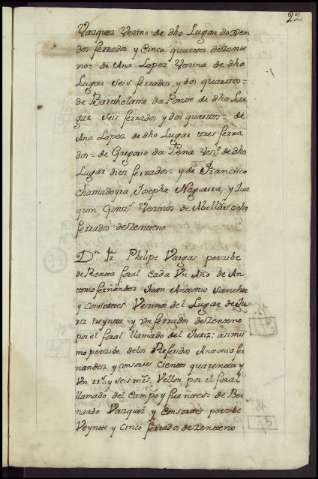 22
Vazquez Vecino de dho Lugar do
dos ferrados y Cinco quartos de Zenteno
de Ana Lopez Vecina de dho
Lugar Seis ferrados, y dos quartos
de Bartholome da de dho Lu
gar Seis ferrados y dos quartos de
Ana Lopez de dho Lugar tres ferra
dos de Gregorio da Pena Vezº de dho
Lugar diez ferrados y de Francisco
Josepha Nogueira, y Joa
quin Gonzz Vezinos de Abellas ocho
ferrados de Zenteno
Dn Phelipe Vargas percibe
de Renta foral Cada Un Año de An
tonio fernandez Juan Antonio Sanchez
y consortes Vecinos del Lugar de
Veynte y Un ferrados de Zenteno
por el foral llamado del Juiz: asimis
mo percibe delos Referidos Antonio fer
nandez y consortes Ciento quarenta y
Un rrs y seis mrs Vellon por el foral
llamado del Campo y fuentes: de Ber
nardo Vazquez y Consortes percibe
Veynte y cinco ferrados de Zenteno